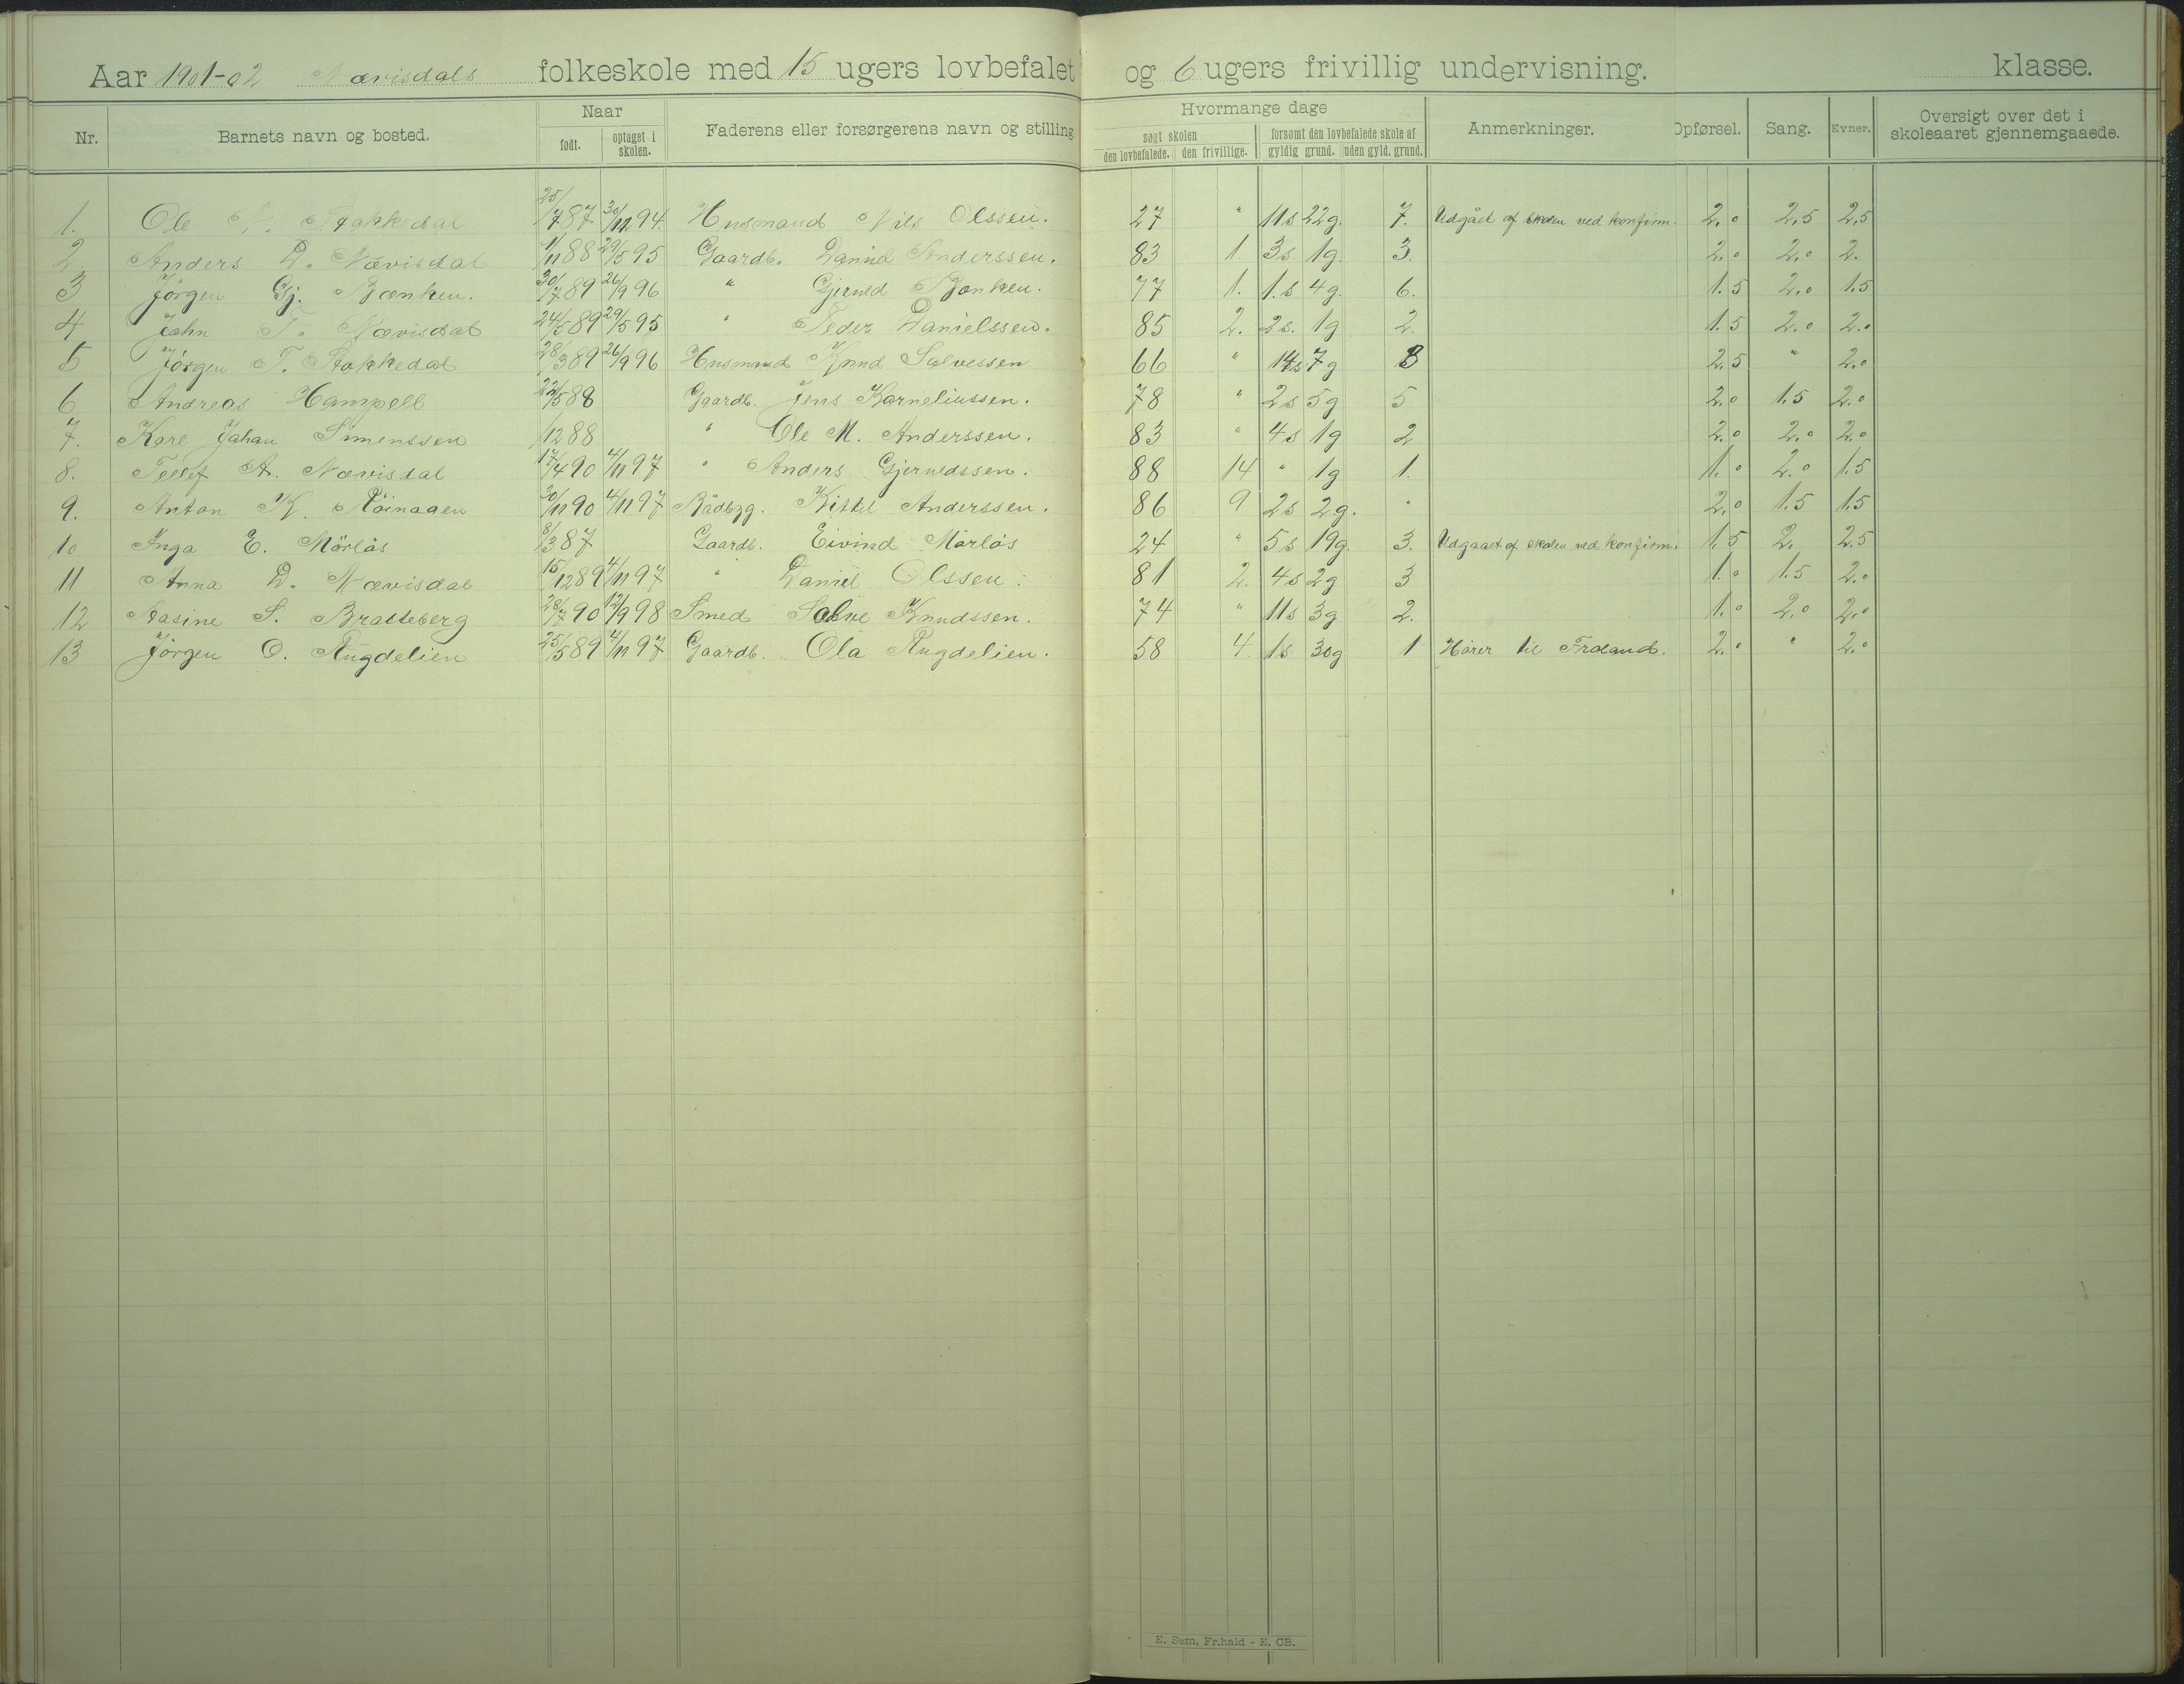 Aar 1901-02 Nævisdals folkeskole med 15 ugers lovbefalet og 6 ugers frivillig undervisning. klasse.
Nr. Barnets navn og bosted. Naar født. optaget i skolen. Faderens eller forsørgerens navn og stilling. Hvormange dage søgt skolen den lovbefalede. den frivillige. forsømt den lovbefalede skole af gyldig grund. uden gyld. grund. Anmerkninger. Opførsel. Sang. Evner. Oversigt over det i skoleaaret gjennemgaaede.
1. Ole N. Stokkedal 25/7 87 30/11 94. Husmand Nils Olssen. 27 " 11s 22g. 7. Udgået af skolen ved konfirm. 2.0 2.5 2.5
2 Anders D. Nævisdal 1/11 88 29/5 95 Gaardb. Daniel Anderssen. 83 1. 3s. 1g. 3. 2.0 2.0 2.
3 Jörgen Gj. Bjønken. 30/7 89 26/9 96 " Gjerued Bjønken. 77 1. 1.s 4g. 6. 1.5 2.0 1.5
4 Jahn T. Nævisdal 24/5 89 29/5 95 " Peder Danielssen. 85 2. 2s. 1g 2. 1.5 2.0 2.0
5 Jörgen T. Stokkedal 28/3 89 26/9 96 Husmand Knud Salvessen 66 " 14s 7g 8 2.5 " 2.0
6 Andreas Hampell 22/5 88 Gaardb. Jens Korneliussen. 78 " 2s 5g 5 2.0 1.5 2.0
7. Karl Johan Simenssen 12 88 " Ole M. Anderssen. 83 " 4s 1g 2 2.0 2.0 2.0
8. Tellef A. Nævisdal 17/4 90 4/11 97 " Anders Gjeruldssen. 88 14 " 1g 1. 1.0 2.0 1.5
9. Anton K. Röinaaen 30/11 90 4/11 97 Rådbyg. Kittel Anderssen. 86 9 2s 2g. " 2.0 1.5 1.5
10 Inga E. Mörlås 8/3 87 Gaardb. Eivind Mörlås 24 " 5s 19g. 3. Udgaaet af skolen ved konfirm. 1.5 2. 2.5
11 Anna D. Nævisdal 15/12 89 4/11 97 " Daniel Olssen. 81 2. 4s 2g 3 1.0 1.5 2.0
12 Aasine S. Bratteberg 28/7 90 12/9 98 Smed Salve Knudssen. 74 " 11s 3g 2. 1.0 2.0 2.0
13 Jörgen O. Rugdelien 25/5 89 4/11 97 Gaardb. Ola Rugdelien. 58 4. 1s 30g 1 Hörer til Froland. 2.0 " 2.0
E. Sem, Fr.hald - E. CB.